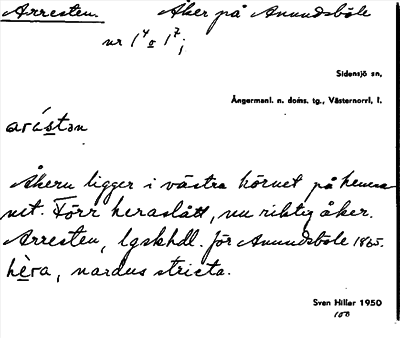 Arresten. Åker på Anundsböle
nr 1⁴ o 1⁷;
Sidensjö sn,
Ångermanl. n. doms. tg., Västernorrl. l.
arástən
Åkern ligger i västra hörnet på hemma
net. Förr heraslått, nu riktig åker.
Arresten, lgskhdl. för Anundsböle 1865.
hèra, nardus stricta.
Sven Hiller 1950
100